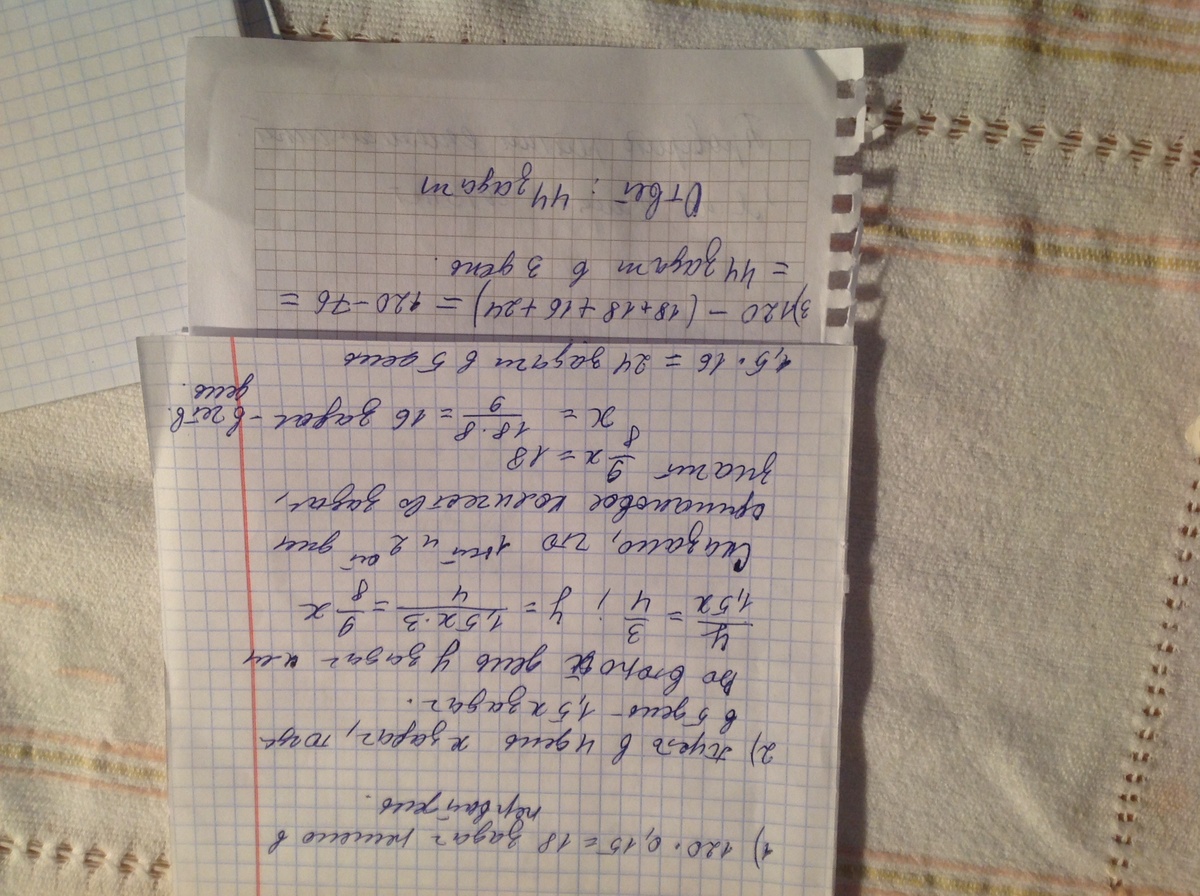 1) 120 · 0,15 = 18 задач решено в
первый день.
2) Пусть в 4 день x задач, тогда
в 5 день – 1,5 x задач.
Во второй день y задач или
y/1,5x = 3/4 ; y = 1,5x·3/4 = 9/8 x
Сказано, что 1ый и 2ой дни
одинаковое количество задач,
значит 9/8 x = 18
x = 18·8/9 = 16 задач – в четв.
день.
1,5 · 16 = 24 задачи в 5 день
3) 120 – (18+18+16+24) = 120–76 =
= 44 задач в 3 день.
Ответ : 44 задач